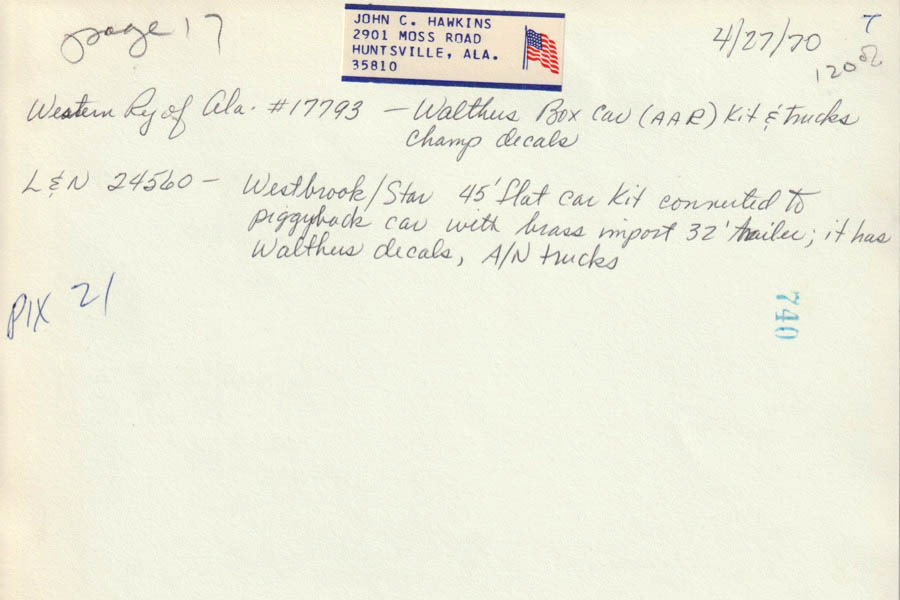 page 17
JOHN C. HAWKINS
2901 MOSS ROAD
HUNTSVILLE, ALA.
35810
4/27/70
T
120%
Western Ry of Ala. #17793 — Walthers Box Car (AAR) Kit & trucks
Champ decals
L&N 24560 — Westbrook/Star 45' flat car kit converted to
piggyback car with brass import 32' trailer; it has
Walthers decals, A/N trucks
PIX 21
740